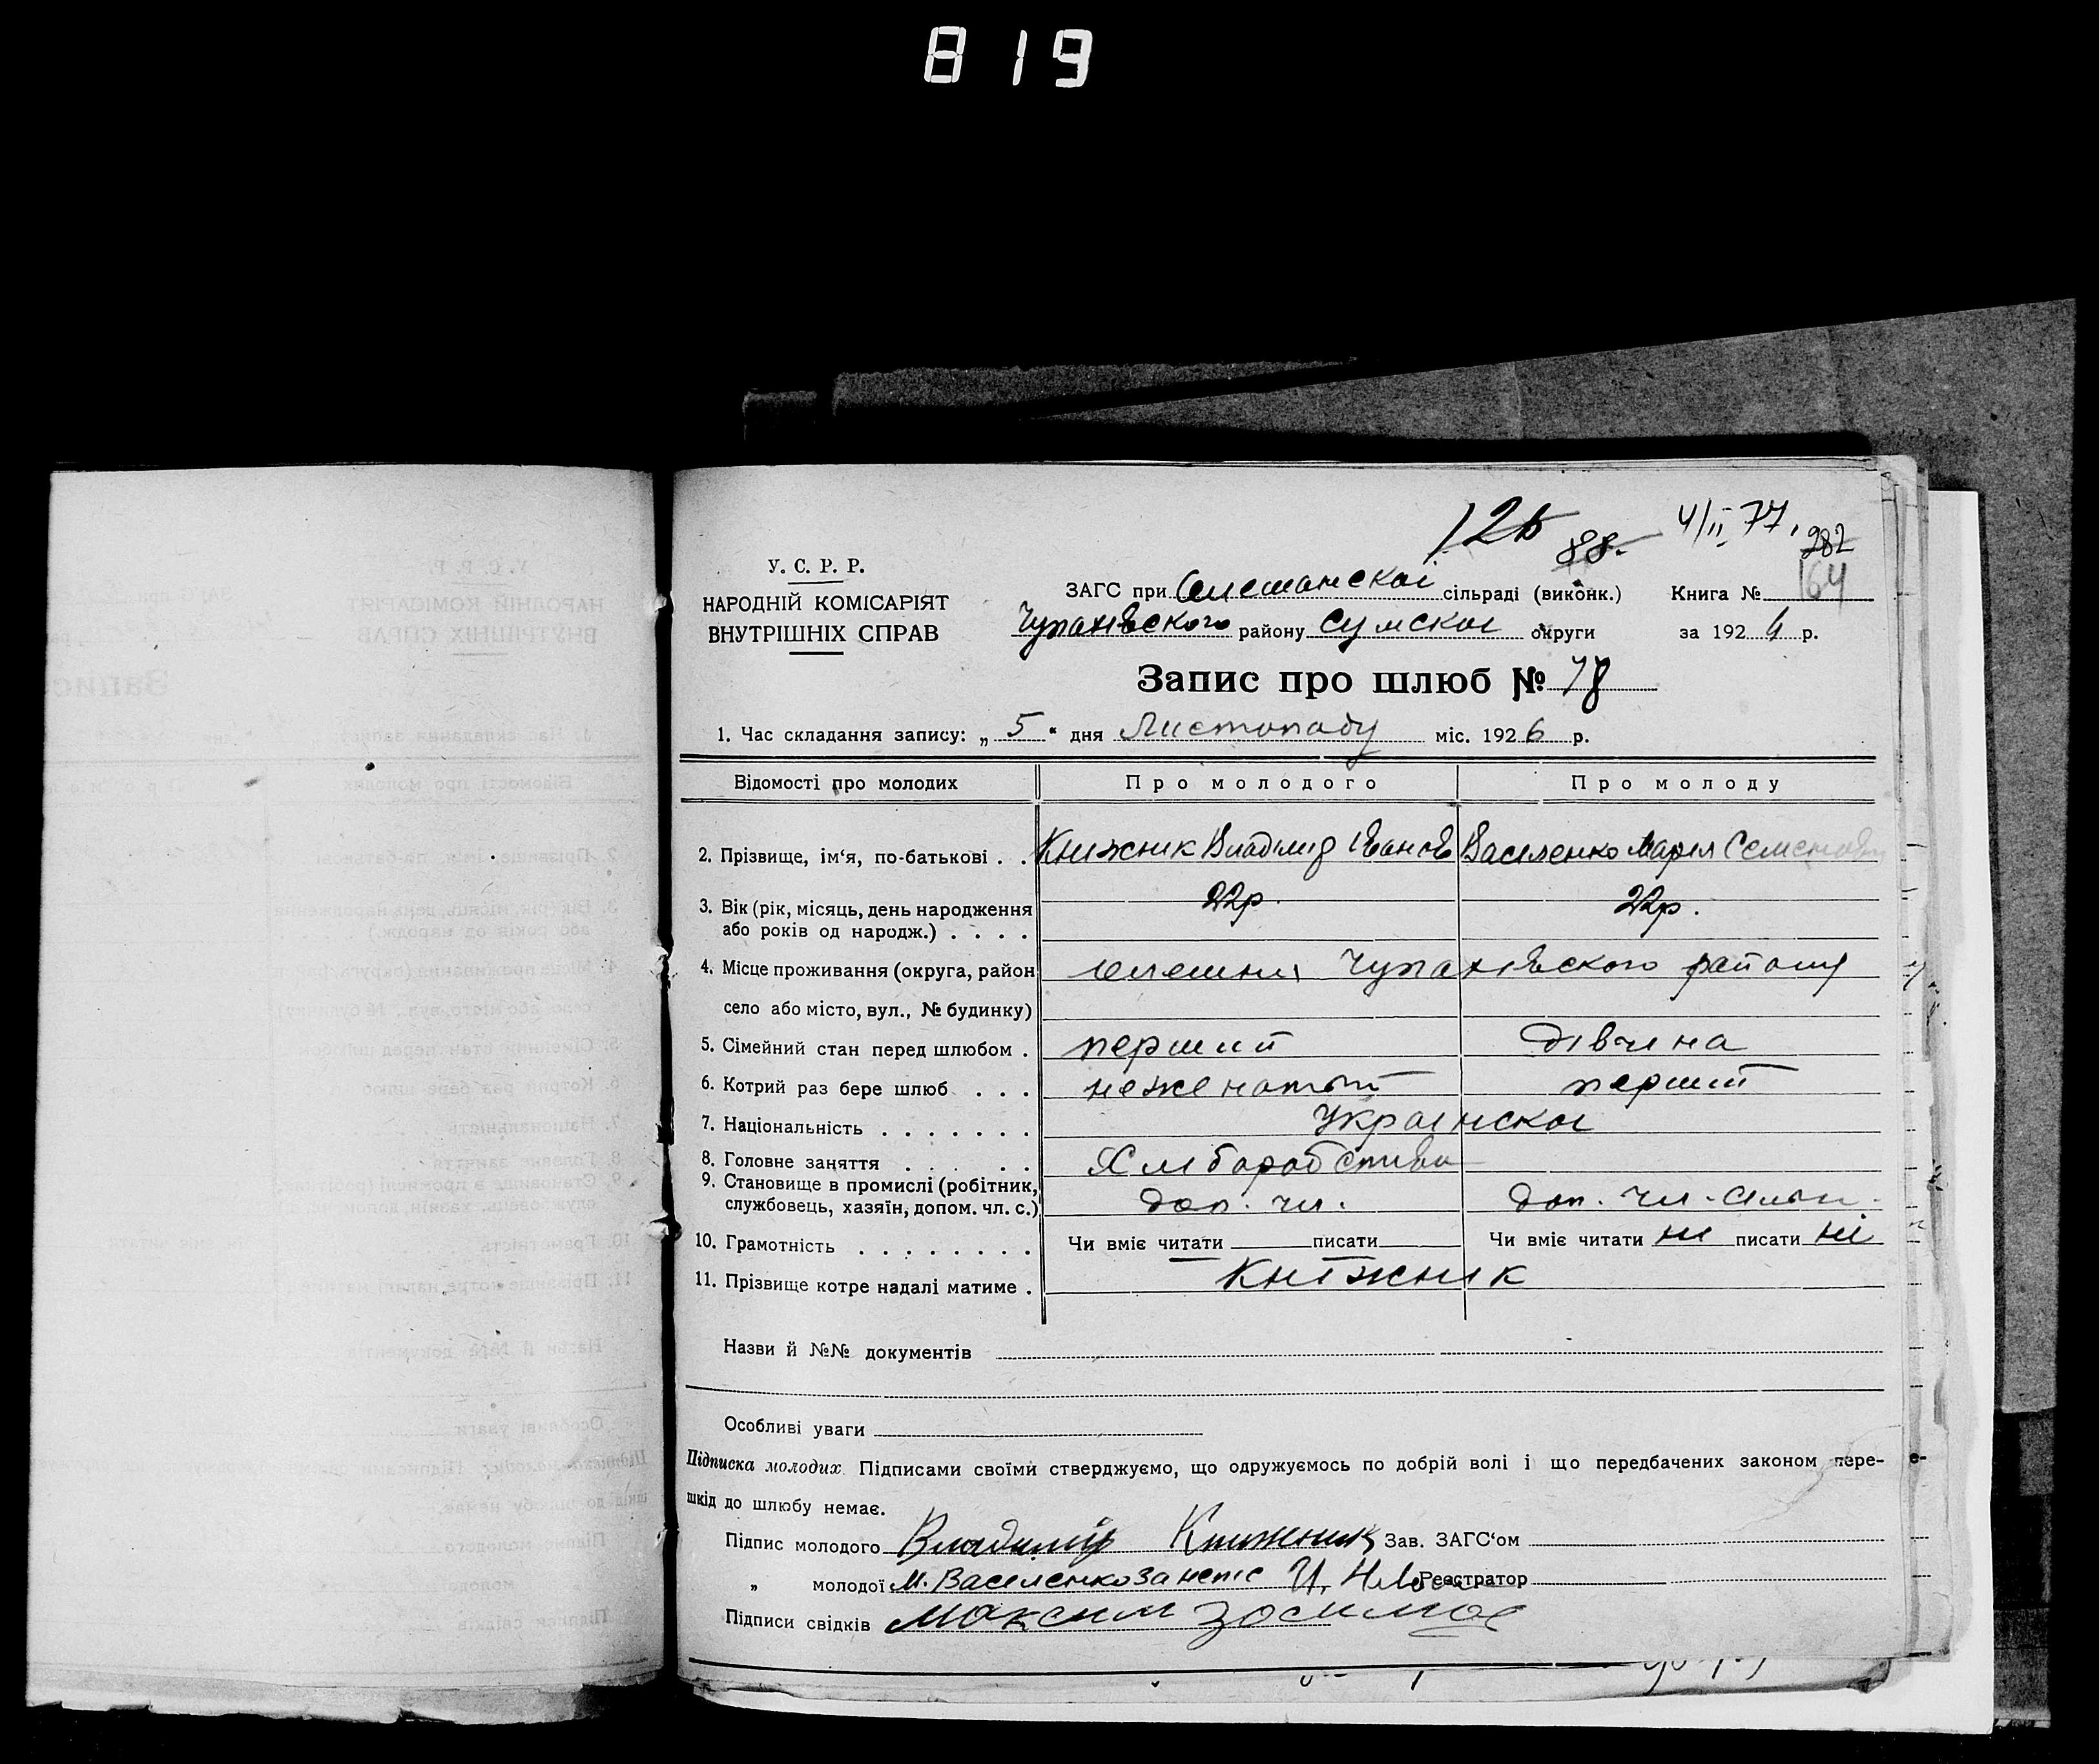 819
125 88. 4/II 77. 282
У. С. Р. Р.
НАРОДНІЙ КОМІСАРІЯТ
ВНУТРІШНІХ СПРАВ
ЗАГС при Олешанскоі сільраді (виконк.) Книга № 164
Чупахівского району Сумскоі округи за 192 6 р.
Запис про шлюб № 78
1. Час складання запису: „ 5 “ дня Листопаду міс. 192 6 р.
Відомості про молодих Про молодого Про молоду
2. Прізвище, ім‘я, по-батькові . . Книжник Владимір Іванов Василенко Марія Семенов
3. Вік (рік, місяць, день народження 22р. 22р.
або років од народж.) . . . .
4. Місце проживання (округа, район Олешня Чупахівского району
село або місто, вул., № будинку)
5. Сімейний стан перед шлюбом . перший дівчина
6. Котрий раз бере шлюб . . . неженатий перший
7. Національність . . . . . . . Украінскоі
8. Головне заняття . . . . . Хліборобство
9. Становище в промислі (робітник,
службовець, хазяїн, допом. чл. с.) доп. чл. доп. чл.
10. Грамотність . . . . . . . . Чи вміє читати писати Чи вміє читати ні писати ні
11. Прізвище котре надалі матиме . Книжник
Назви й №№ документів
Особливі уваги
Підписка молодих. Підписами своїми стверджуємо, що одружуємось по добрій волі і що передбачених законом пере-
шкід до шлюбу немає.
Підпис молодого Владимір Книжник Зав. ЗАГС‘ом
„ молодої М. Василенко за непис Реєстратор
Підписи свідків Максим